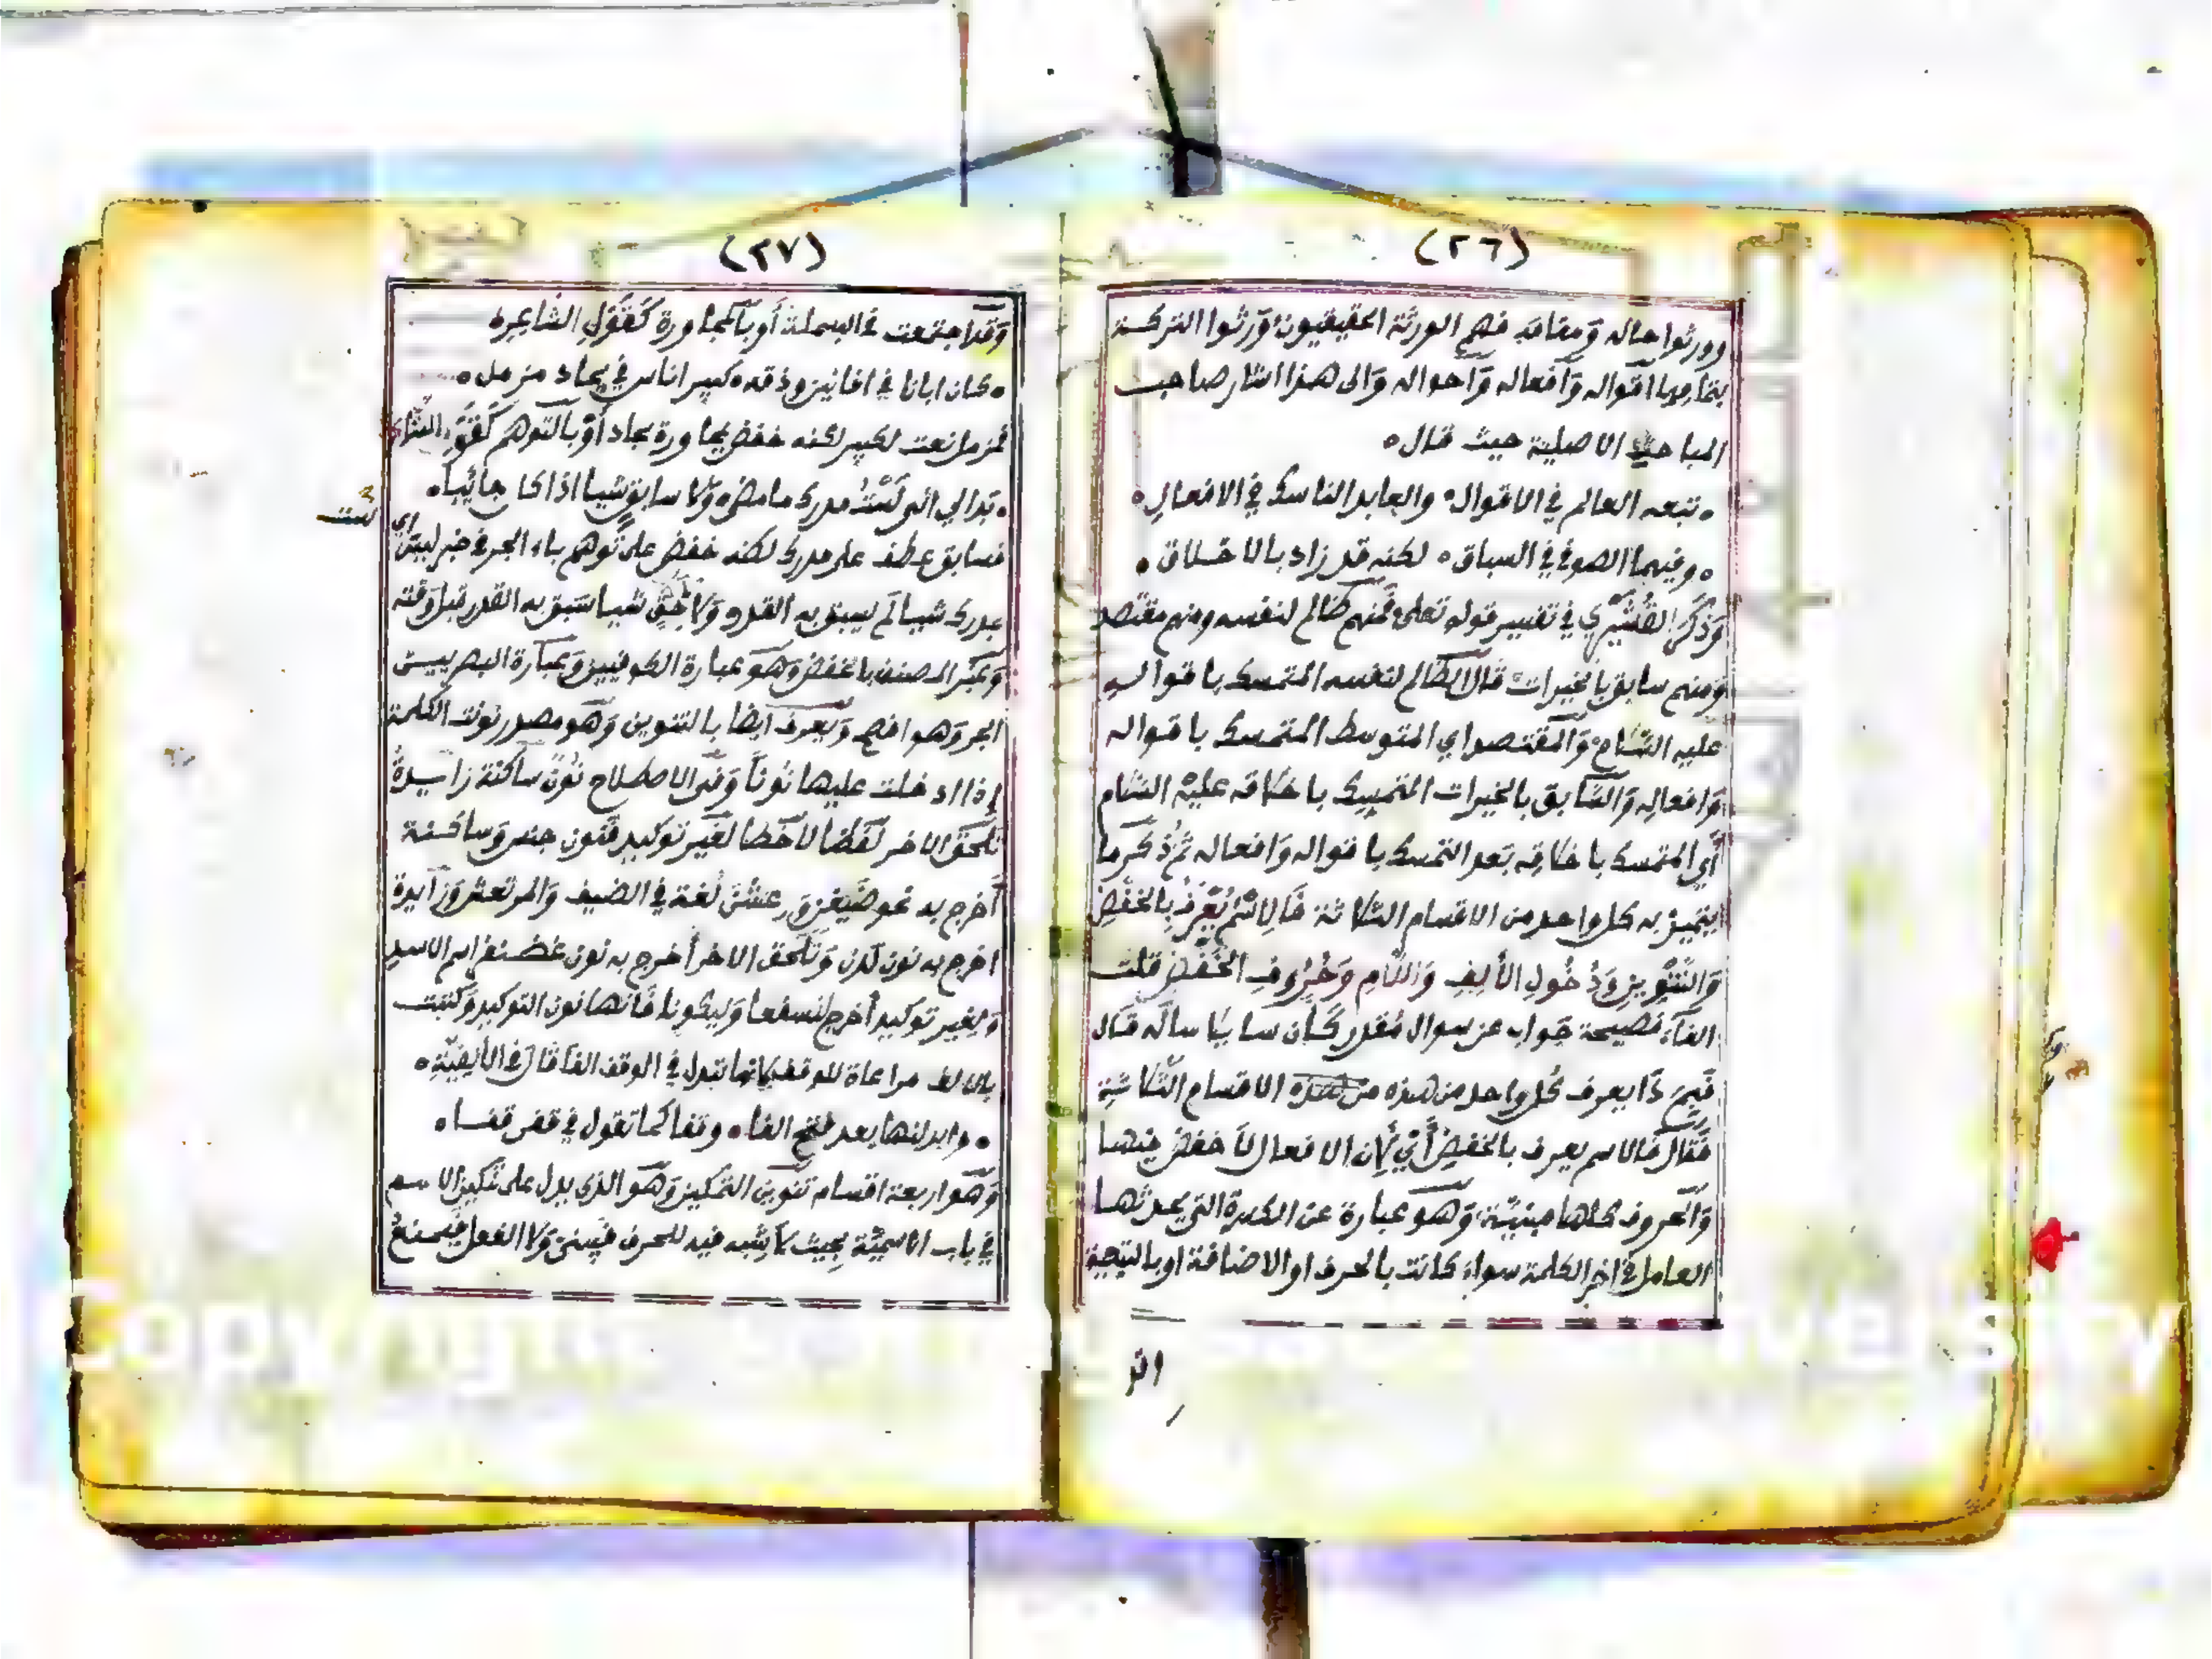 (٢٦)
وورثوا حاله وَمقامَه فهم الورثة الحقيقيون وَرثوا التركة
بتمامها اقواله وَافعاله وَاحواله وَالى هذا اشار صاحب
المباحث الاصلية حيث قال ه
ه تبعه العالم في الاقوال ه والعابد الناسك في الافعالِ ه
ه وفيهما الصوفي في السباق ه لكنه قد زاد بالاخلاق ه
وَذكَرَ القُشَيْرِي في تفسير قوله تعلى فمنهم ظالم لنفسه ومنهم مقتصد
وَمنهم سابق بالخيرات قال الظالم لنفسه المتمسك باقواله
عليه السّلام وَالمقتصد اي المتوسط المتمسك باقواله
وَافعالِه وَالسَّابق بالخيرات المتمسك باخلاقه عليْه السّلام
أي المتمسك باخلاقِه بَعد التمسك باقواله وَافعاله ثم ذُكر ما
يتميز به كل واحد من الاقسام الثلاثة فَالِاسْمُ يُعْرَفُ بِالخَفْضِ
وَالتَّنْوِينِ وَدُخُولِ الأَلِفِ وَاللَّامِ وَحُرُوفِ الخَفْضِ قلت
الفآء فصيحة جَواب عن سوال مُقدر كَان سايلا ساله قَال
فَبِمَ ذَا يعرف كُل واحد من هذه من هذه الاقسام الثّلاثة
فَقَال فالاسم يعرف بالخفضِ أَيْ لِأن الافعال لَا خفضَ فيها
وَالحروف كلها مبنيّة وَهَو عبارة عن الكسرة التي يحدثها
العامل في اخِر الكلمة سواء كانت بالحرف او الاضافة او بالتبعية
(٢٧)
وَقَد اجتمعت في البسملة أو بالمجاورة كَقَوْلِ الشَّاعِر ه
ه كان ابانا في افانين وذقه ه كبير اناس في بجاد مزمل ه
فمزمل نعت لكبير لكنه خفض بمجاورة بجاد أوْ بالتوهم كَقَوْل الشّاعر
ه بَدا لي اني لَسْتُ مدرك ما مضى ه وَلا سابق شيا اذا كا جائيا ه
فسابق عطف على مدرك لكنه خفض على توهم باء الجر في خبر ليس اي
بمدرك شيا لم يسبق به القدر وَلا شيا سَبق به القدر قبل وَقته
وَعبّر المصنف بالخفض وَهوَ عبارة الكوفيين وَعبَارة البصريين
الجر وَهو افصح وَيعرف ايضا بالتنوين وَهو مصدر نونت الكلمة
إذا ادخلت عليها نُوناً وَفي الاصطلاح نُونٌ ساكنة زايدةٌ
تلحَق الاخر لَفظا لا خطا لغَير توكيد فنون جنس وَساكنة
اَخرج به نحو ضَيْفن وَرعشن لُغة في الضيف وَالمرتعش وَزايدة
اخرج به نون لدن وَتلحَق الاخر أخرج به نون غضنفر اسم الاسد
وَلِغير توكيد أخرج لنسفعا وَليكونا فانها نون التوكيد وَكتبت
بالالف مراعاة للوقف لانها تبدل في الوقف الفا قَال في الألفيّةِ ه
ه وابدلنها بعد فتح الفا ه وقفا كما تقول في قفن قفا ه
وَهو اربعة اقسام تنوين التمكين وَهوَ الذي يدل على تمكين الاسم
في باب الاسميّة بحيث لا يشبه فيه للحرف فيبنى وَلا الفعل فيمنعُ